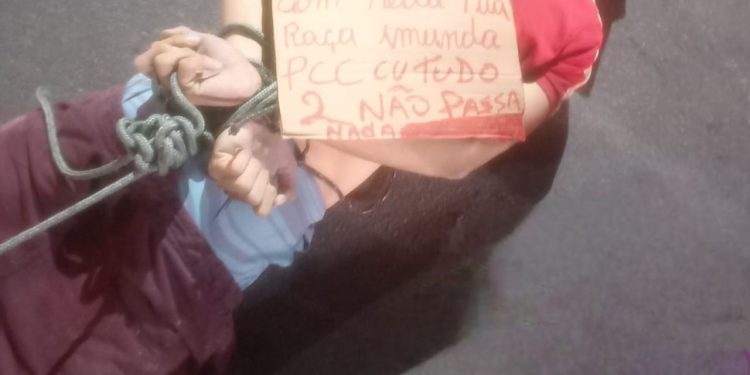 Com
Raça imunda
PCC CU TUDO
2 NÃO PASSA
NADA